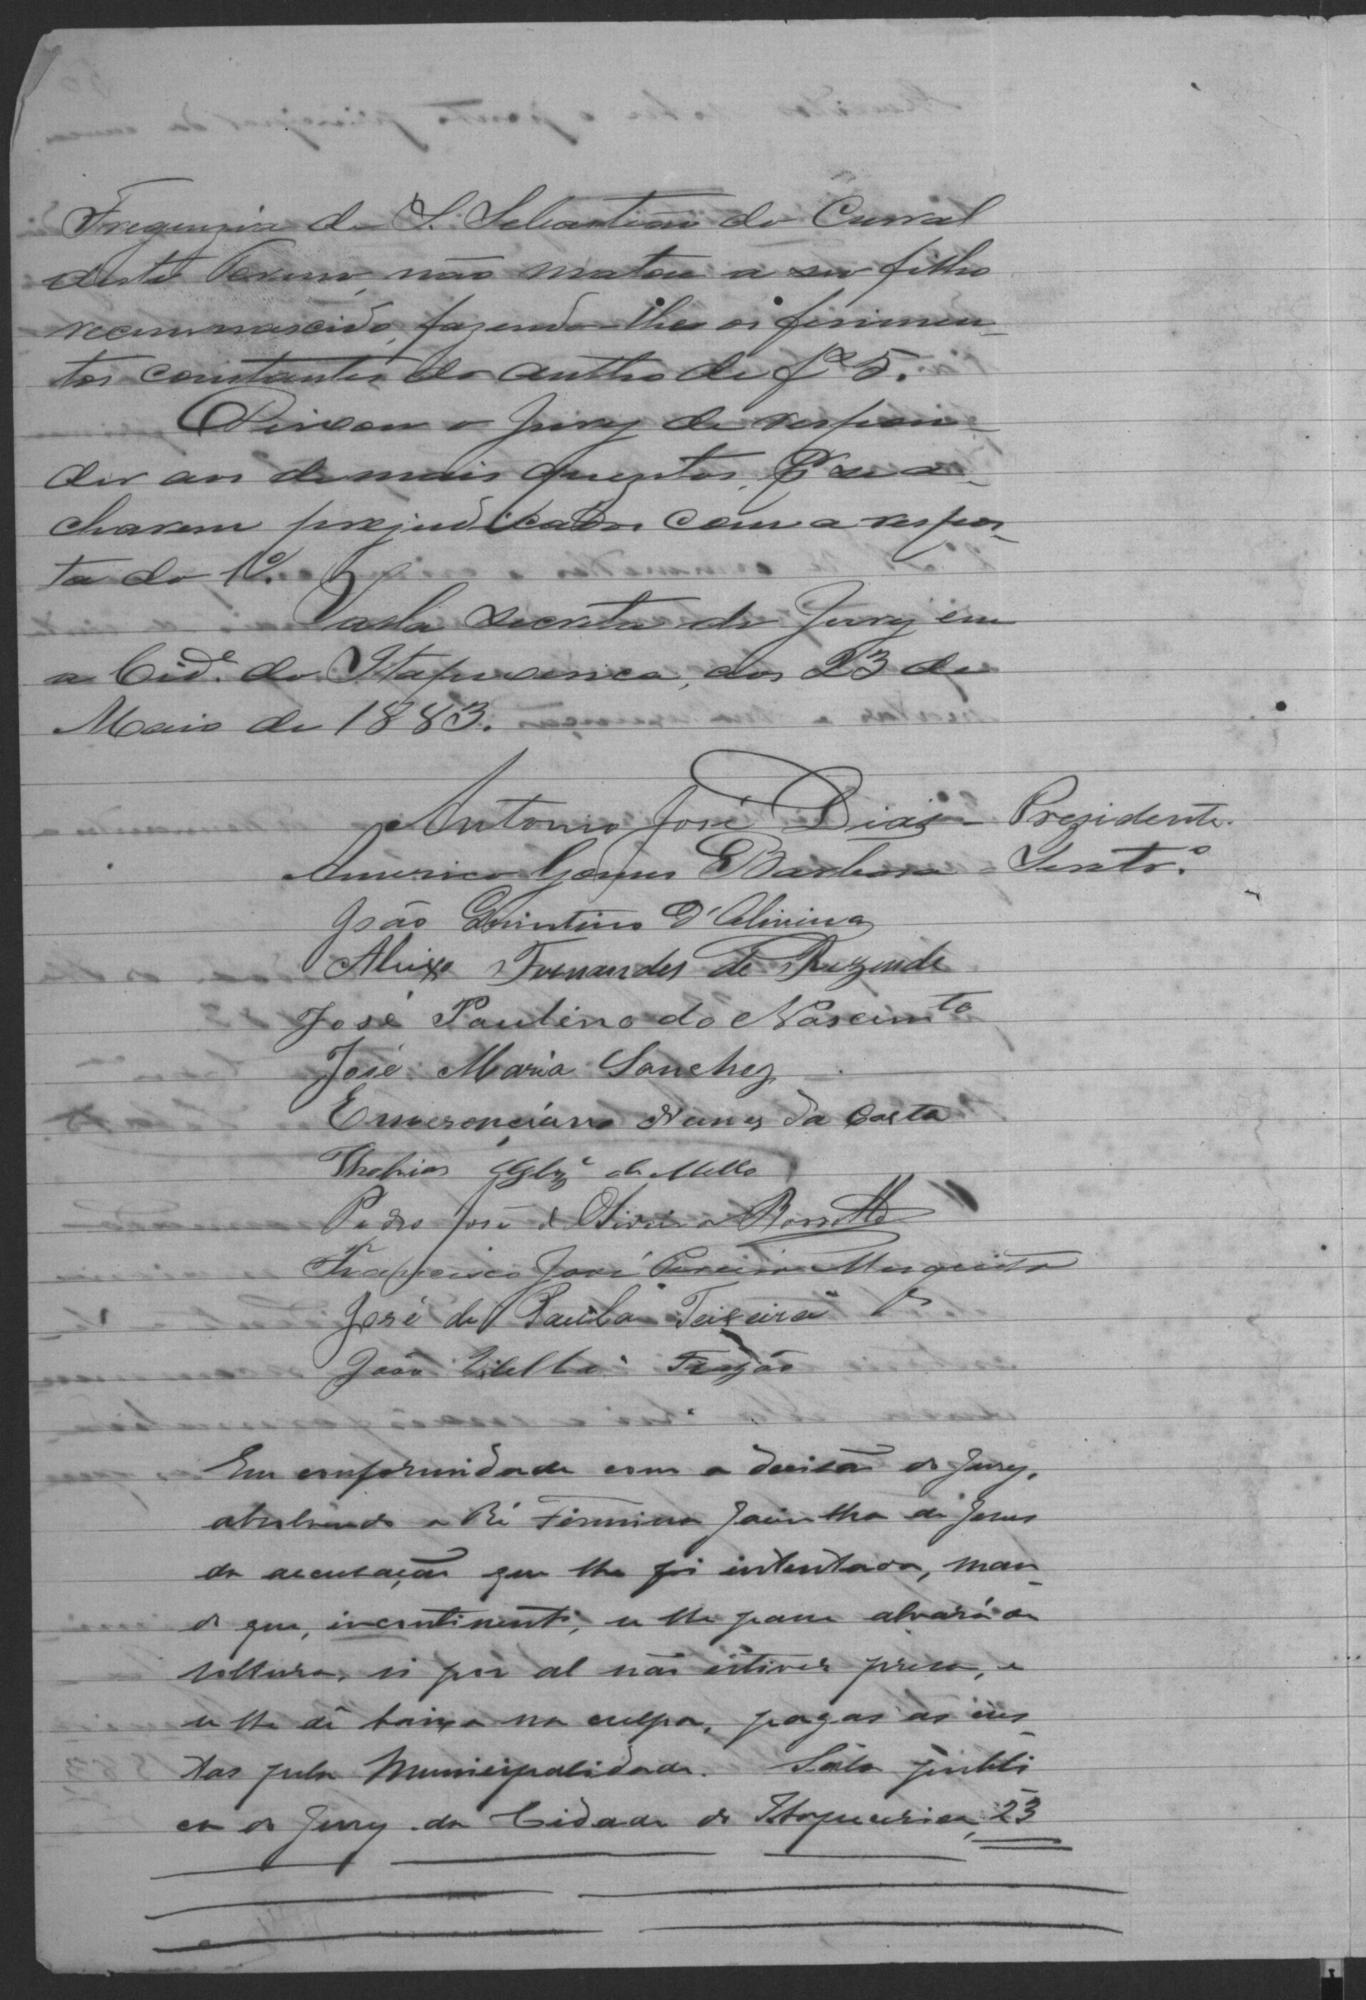 Freguezia de S. Sebastião do Curral
deste Termo, não matou a seu filho
recemnascido, fazendo-lhe os ferimen-
tos constantes do autho de fs 5.
Deixou o Jury de respon-
der aos demais quezitos, por se a-
charem prejudicados com a respos-
ta do 1º.
Salla secreta do Jury em
a Cide. de Itapecerica, aos 23 de
Maio de 1883.
Antonio José Dias - Prezidente.
Americo Gomes Barbosa - Secretrº.
João Quintino d'Oliveira
Aleixo Fernandes de Rezende
José Paulino do Nascimto
José Maria Sanches
Emerenciano Nunes da Costa
Thobias de Mello
Pedro José d'Oliveira Barreto
Francisco José Pereira Mesquita
José de Paula Teixeira
João Villela Frazão
Em conformidade com a decisão do Jury,
absolvendo a Ré Firmina Jacintha de Jesus
da accusação que lhe foi intentada, man-
do que, incontinenti, se lhe passe alvará de
soltura, si por al não estiver presa, e
se lhe dê baixa na culpa, pagas as cus-
tas pela Municipalidade. Sala públi
ca do Jury da Cidade de Itapecerica, 23